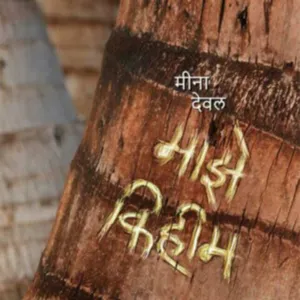 मीना
देवल
माझे
किहीम